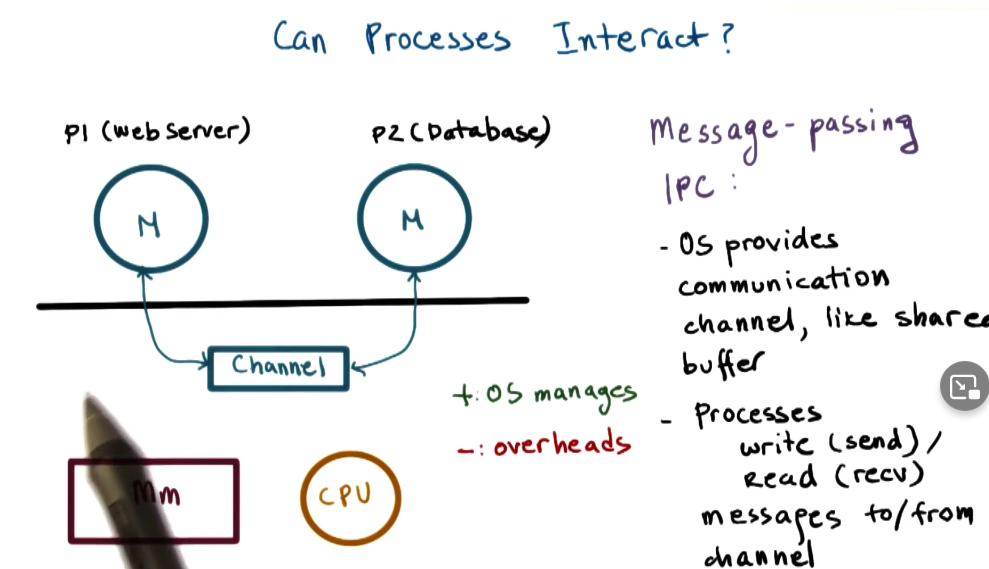 Can Processes Interact?
P1 (Web Server)
P2 (Database)
M
M
Channel
+: OS manages
-: overheads
Mm
CPU
Message-passing
IPC :
- OS provides
communication
channel, like shared
buffer
- Processes
write (send) /
Read (recv)
messages to/from
channel